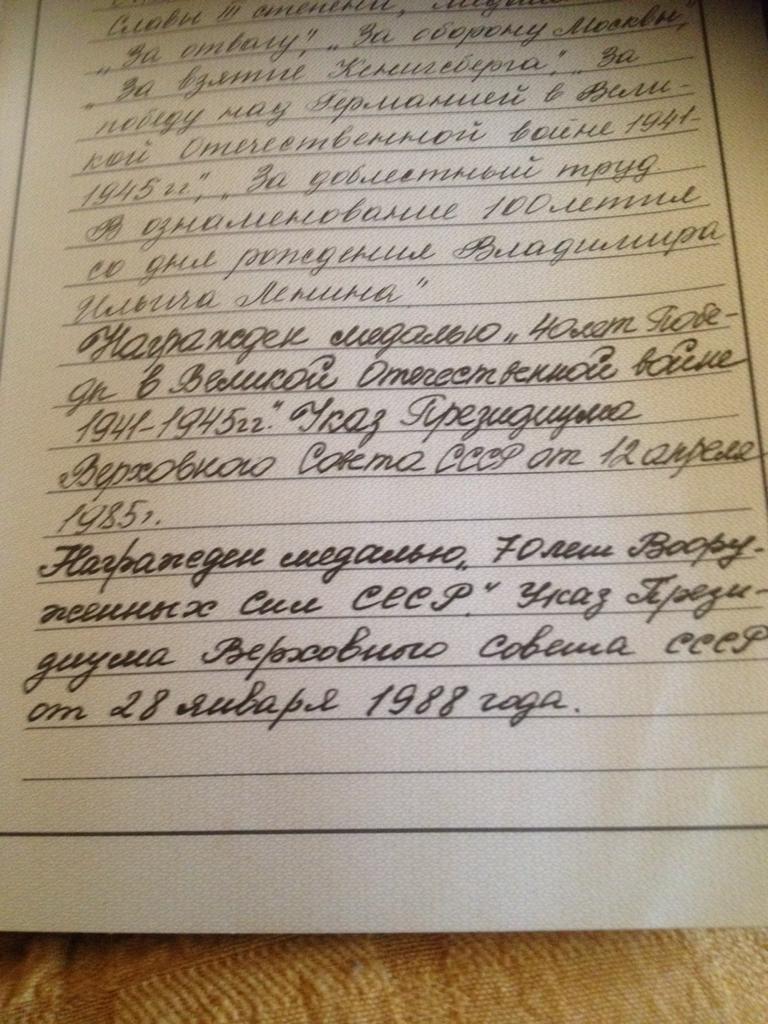 Славы III степени,
„За отвагу", „За оборону Москвы",
„За взятие Кенигсберга", „За
победу над Германией в Вели-
кой Отечественной войне 1941-
1945 гг", „За доблестный труд
В ознаменование 100летия
со дня рождения Владимира
Ильича Ленина"
Награжден медалью „40лет Побе-
ды в Великой Отечественной войне
1941-1945гг." Указ Президиума
Верховного Совета СССР от 12 апреля
1985г.
Награжден медалью „70 лет Воору-
женных Сил СССР." Указ Прези-
диума Верховного Совета СССР
от 28 января 1988 года.